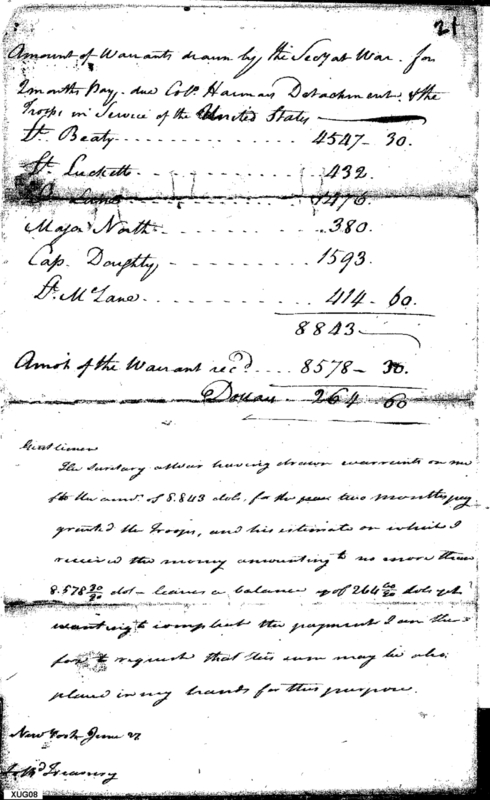 21
Amount of Warrants drawn by the Secy at War. for
2 months Pay. due Coll. Harmars Detachment. & the
Troops in Service of the United States
Lt. Beaty 4547 - 30.
Lt. Luckett 432.
1476.
Major North 380.
Cap. Doughty 1593.
Lt. McLane 414 - 60.
8843
Amot. of the Warrant recd. 8578 - 30.
Dollars 264 60
Gentlemen
The Secretary at War having drawn warrants on me
for the amo. of 8.843 dols. for the two months pay
granted the Troops, and his estimate on which I
received the money amounting to no more than
8.578 30/90 dol - leaves a balance of 264 60/90 dols yet
wanting to compleat the payment I am there-
fore to request that this sum may be also
placed in my hands for this purpose.
New York June 22
Treasury
XUG08